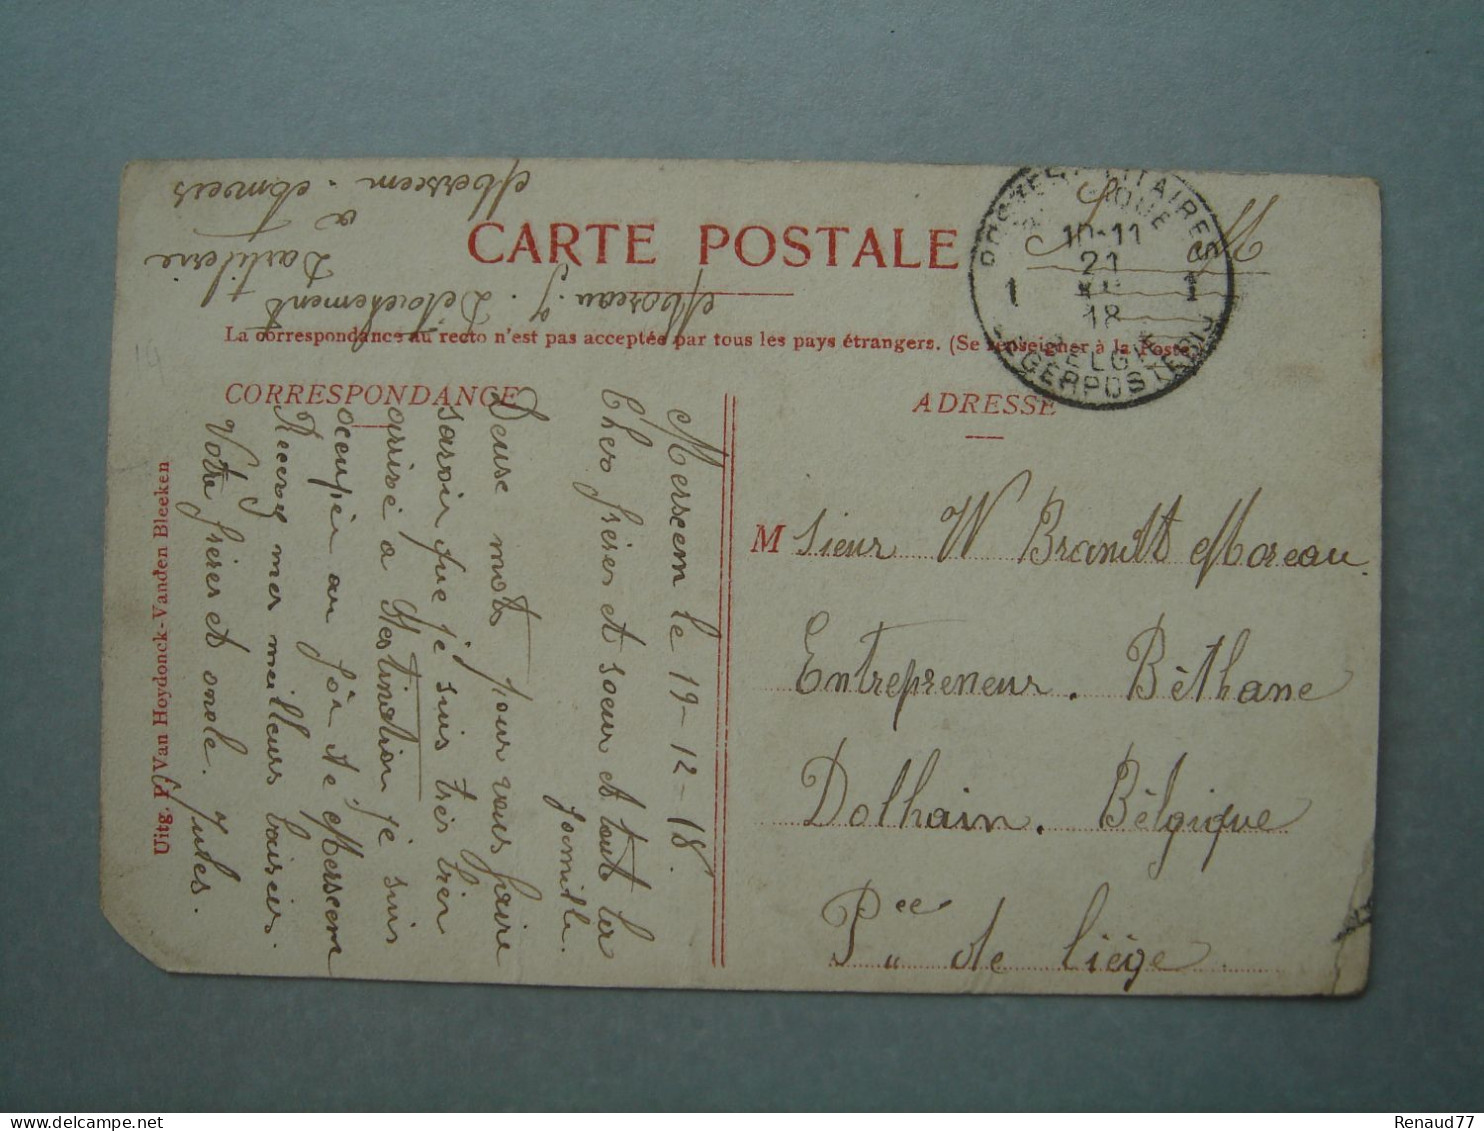 Moreau J. Détachement
D'artilerie
à
Merxem. Anvers
CARTE POSTALE
La correspondance au recto n'est pas acceptée par tous les pays étrangers. (Se renseigner à la Poste)
S. M
POSTES MILITAIRES
BELGIQUE
10-11
21
XII
18
1 1
BELGIE
LEGERPOSTERIJ
CORRESPONDANCE
ADRESSE
Merseem le 19-12-18.
Cher frères et soeur et touts les
famille.
Deuse mots pour vous faire
savoir que je suis très bien
arrivé a destination je suis
occupér au fôr de Merseem
Recevez mes meilleurs baisers.
Votre frères et oncle. Jules.
M sieur W Brandt Moreau.
Entrepreneur. Bèthane
Dolhain. Bèlgique
Pce de Liège.
Uitg. F. Van Hoydonck-Vanden Bleeken
14
Renaud77